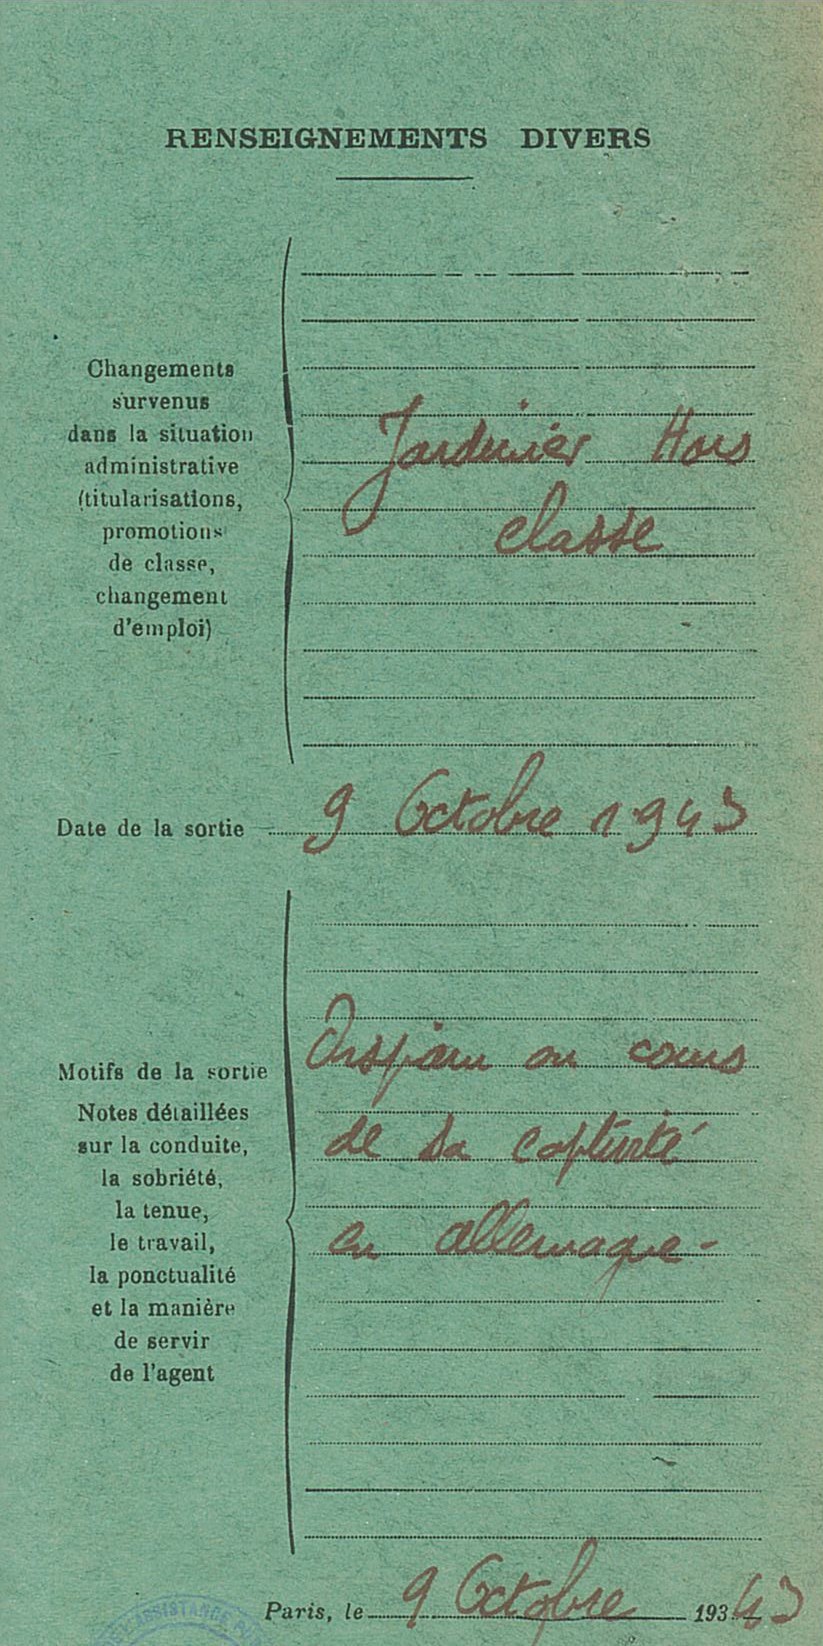 RENSEIGNEMENTS DIVERS
Changements
survenus
dans la situation
administrative
(titularisations,
promotions
de classe,
changement
d'emploi)
Jardinier Hors
classe
Date de la sortie 9 Octobre 1943
Motifs de la sortie
Notes détaillées
sur la conduite,
la sobriété,
la tenue,
le travail,
la ponctualité
et la manière
de servir
de l'agent
Disparu au cours
de sa captivité
en allemagne-
Paris, le 9 Octobre 193 43
ASSISTANCE